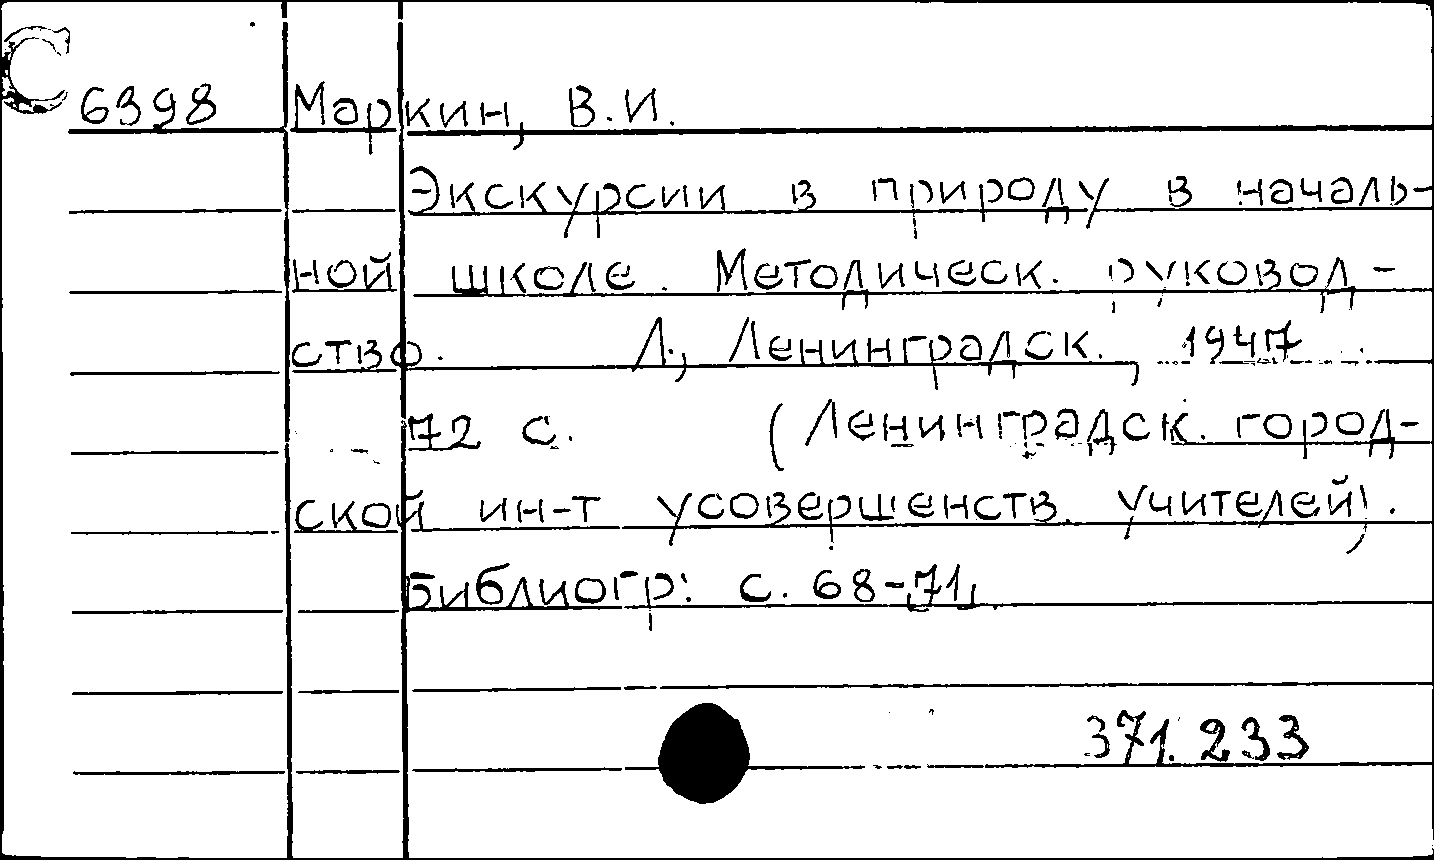 С
6398 Маркин, В.И.
Экскурсии в природу в началь-
ной школе. Методическ. руковод-
ство. Л., Ленинградск., 1947
72 с. (Ленинградск. город-
ской ин-т усовершенств. учителей).
Библиогр: с. 68-71.
371.233